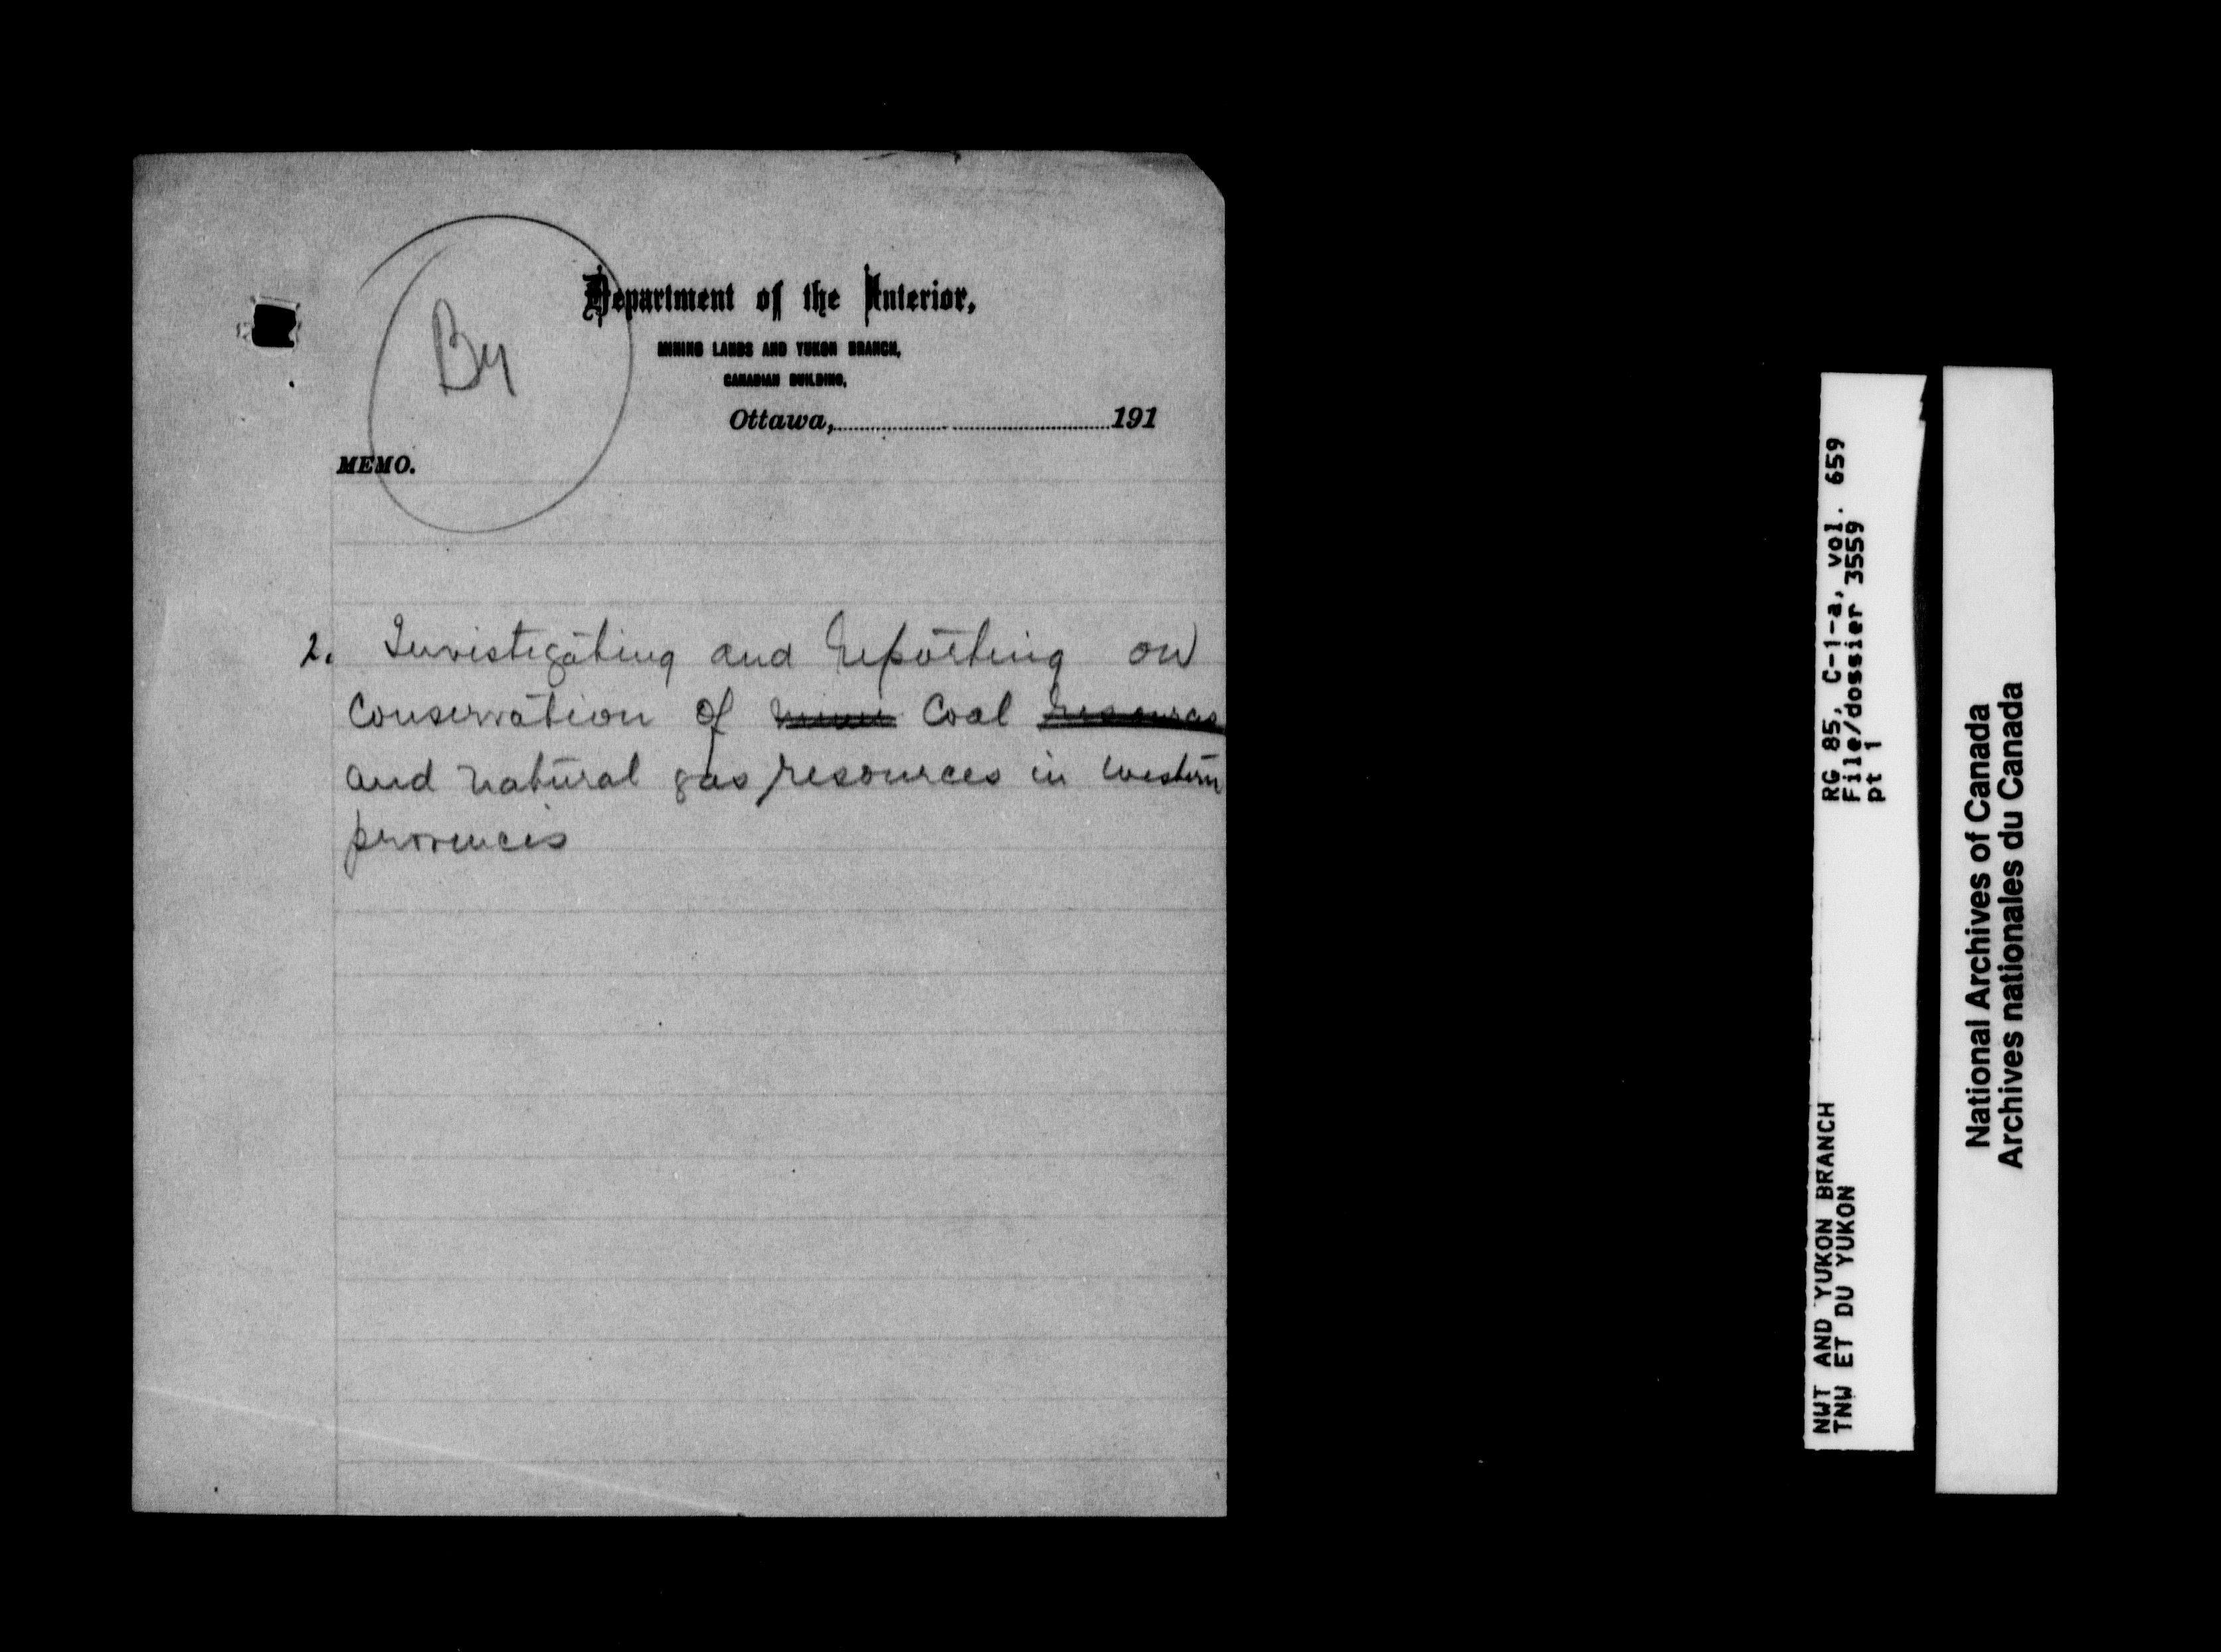 By
Department of the Interior,
MINING LANDS AND YUKON BRANCH,
CANADIAN BUILDING,
Ottawa, 191
MEMO.
2. Investigating and reporting on
Conservation of Coal resources
and natural gas resources in western
provinces
RG 85, C-1-a, vol. 659
File/dossier 3559
pt 1
NWT AND YUKON BRANCH
TNW ET DU YUKON
National Archives of Canada
Archives nationales du Canada